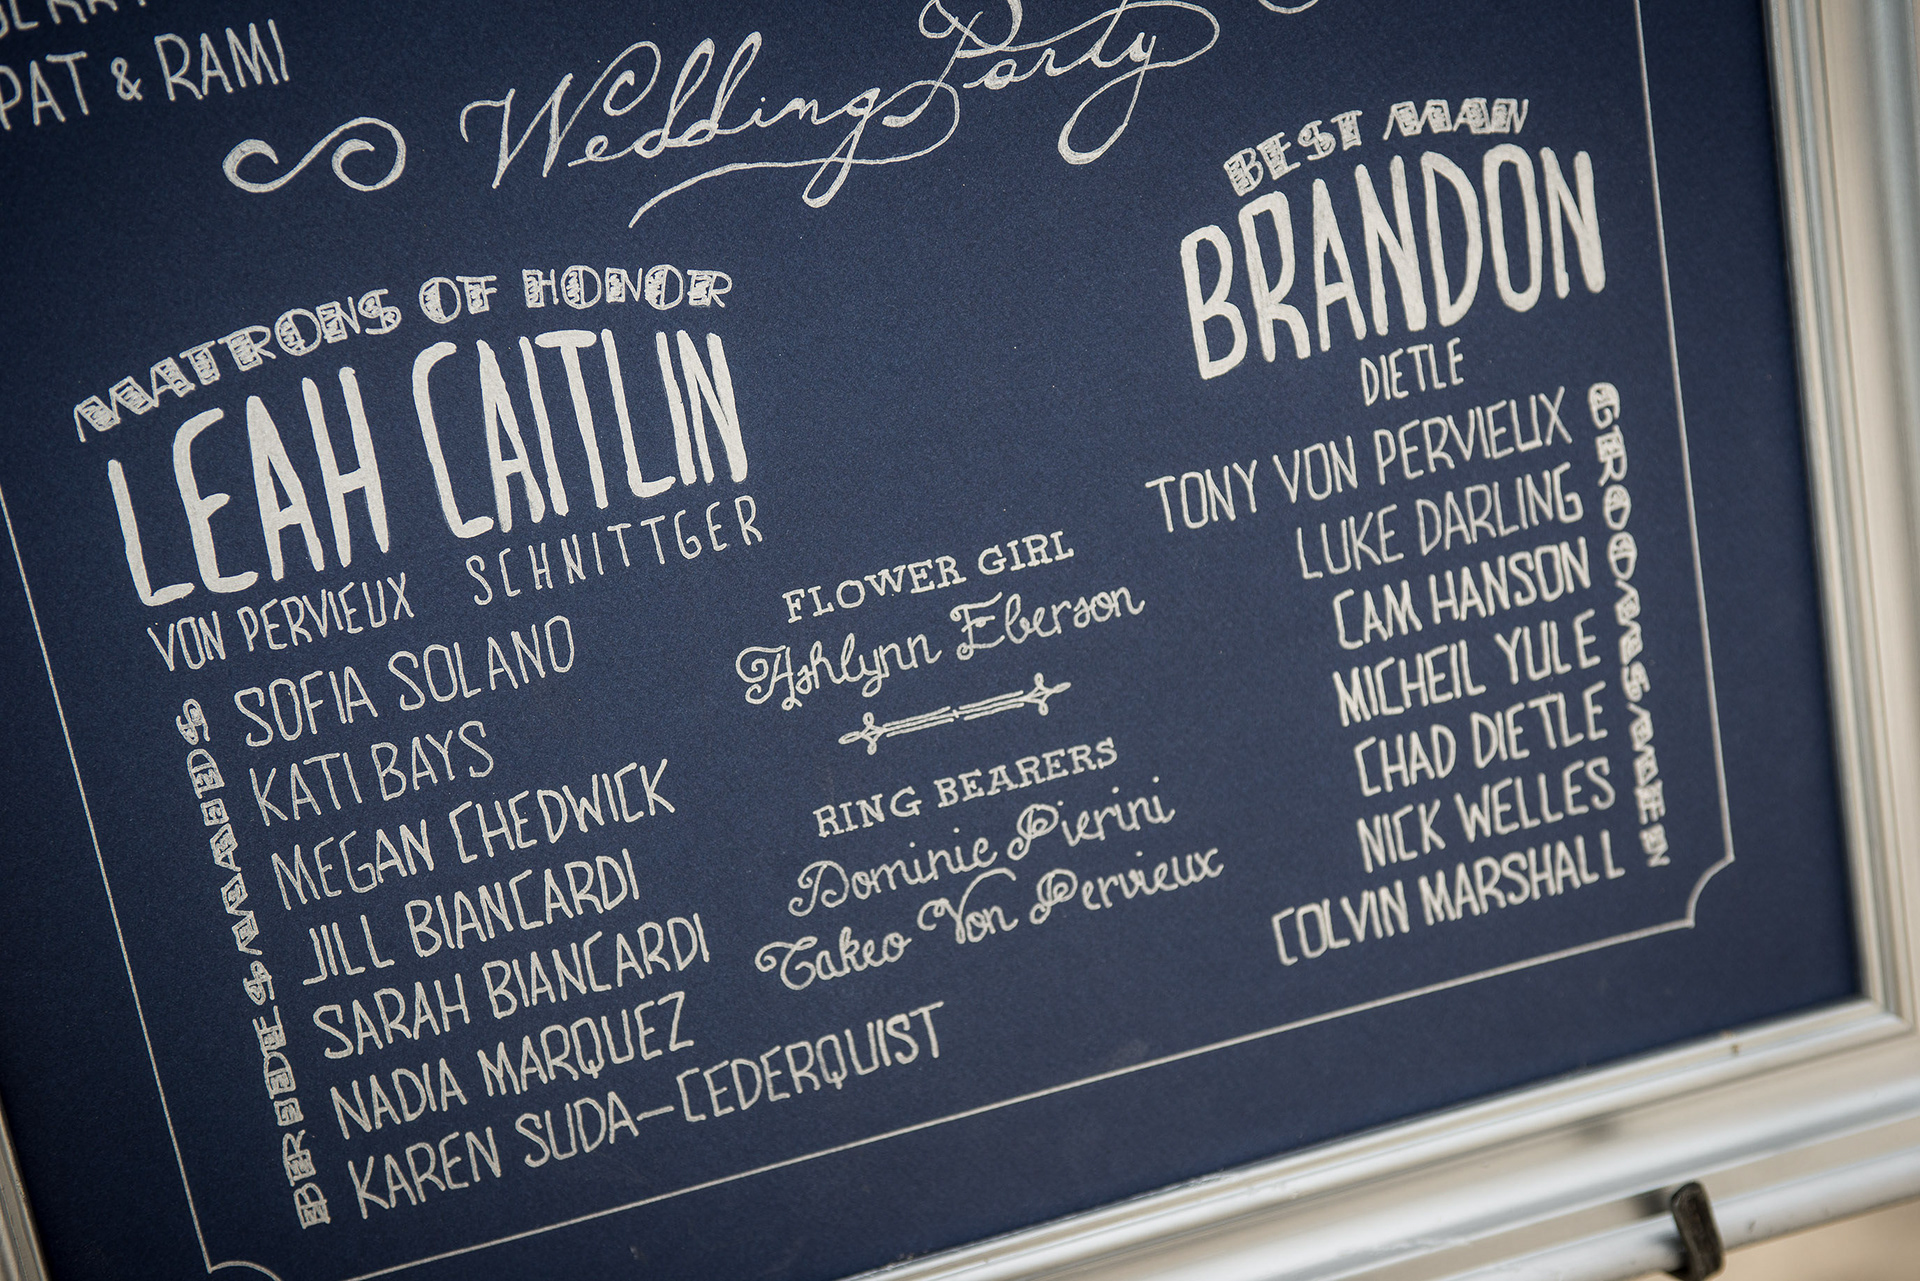 PAT & RAMI
Wedding Party
MATRONS OF HONOR
LEAH CAITLIN
VON PERVIEUX SCHNITTGER
BRIDESMAIDS
SOFIA SOLANO
KATI BAYS
MEGAN CHEDWICK
JILL BIANCARDI
SARAH BIANCARDI
NADIA MARQUEZ
KAREN SUDA-CEDERQUIST
FLOWER GIRL
Ashlynn Eberson
RING BEARERS
Dominic Pierini
Takeo Von Pervieux
BEST MAN
BRANDON
DIETLE
GROOMSMEN
TONY VON PERVIEUX
LUKE DARLING
CAM HANSON
MICHEIL YULE
CHAD DIETLE
NICK WELLES
COLVIN MARSHALL